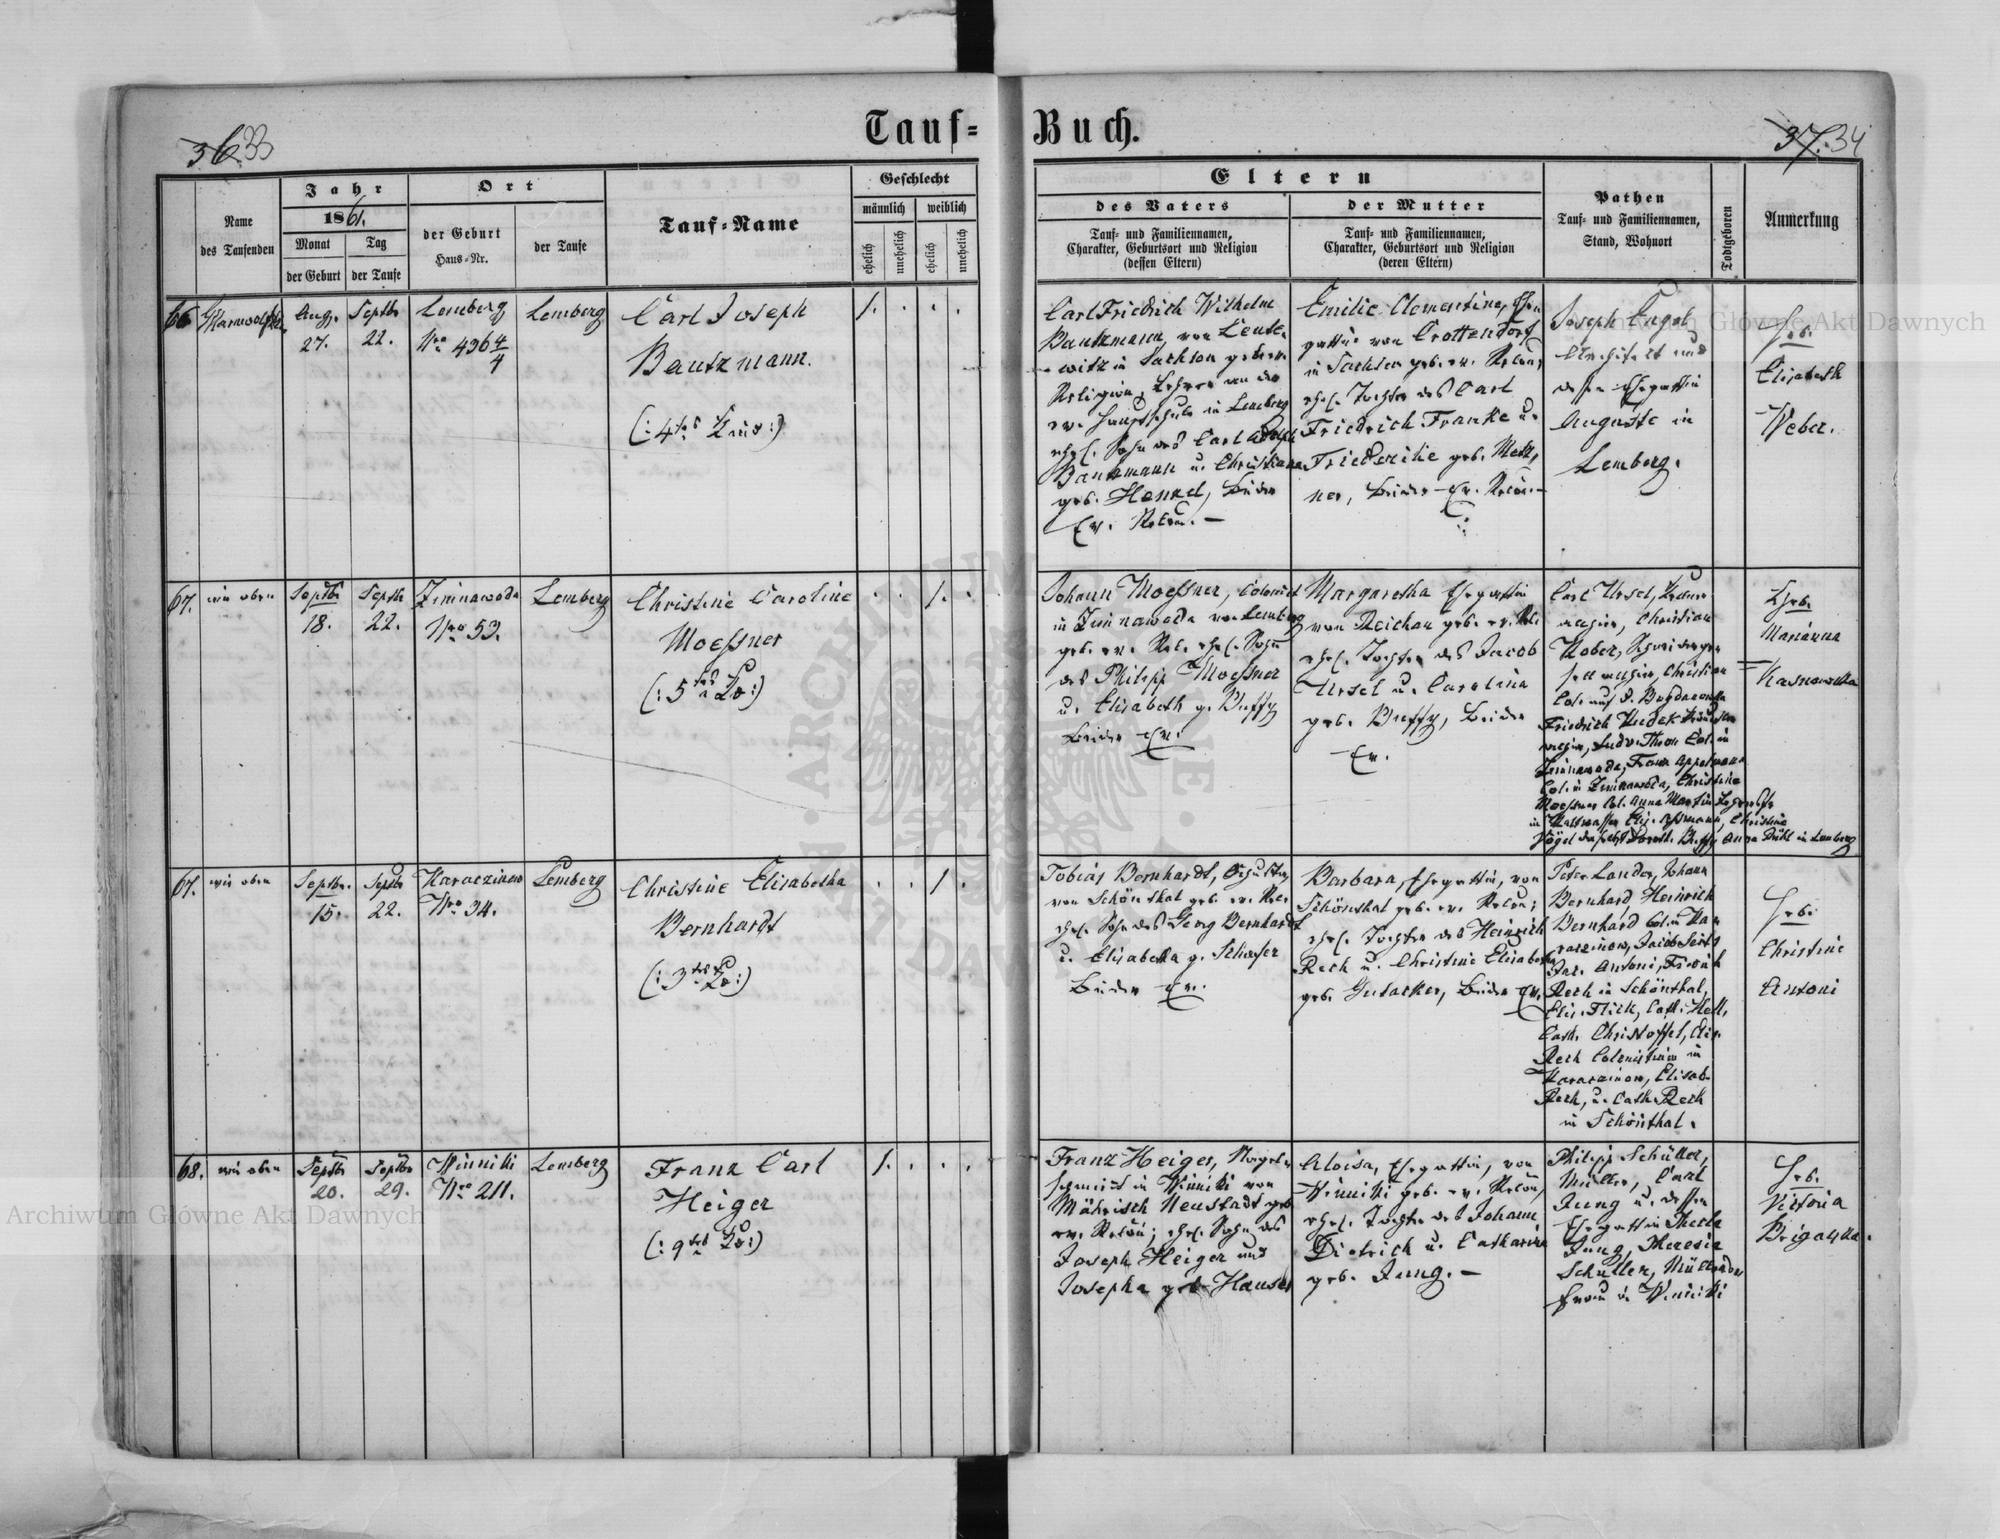 Tauf-Buch.
36. 33
37. 34
Name des Taufenden
Jahr 1861.
Monat der Geburt
Tag der Taufe
Ort
der Geburt Haus-Nr.
der Taufe
Tauf-Name
Geschlecht
männlich
weiblich
ehelich
unehelich
ehelich
unehelich
Eltern
des Vaters
Tauf- und Familiennamen,
Charakter, Geburtsort und Religion
(dessen Eltern)
der Mutter
Tauf- und Familiennamen,
Charakter, Geburtsort und Religion
(deren Eltern)
Pathen
Tauf- und Familiennamen,
Stand, Wohnort
Todtgeboren
Anmerkung
66
Aug. 27.
Septbr 22.
Lemberg
Nro 496 4/4
Lemberg
Carl Joseph
Bautzmann.
(: 4tes Kind :)
1. . . .
Carl Friedrich Wilhelm
Bautzmann, von Leute-
witz in Sachsen geb. ev.
Religion, Lehrer an der
ev. Hauptschule in Lemberg
ehel. Sohn des Carl Adolph
Bautzmann u. Christiana
geb. Henkel, Beide
Ev. Relon. —
Emilie Clementine, Ehe-
gattin von Crottendorf
in Sachsen geb. ev. Relon;
ehel. Tochter des Carl
Friedrich Franke u.
Friederike geb. Metz-
ner, Beide Ev. Relon. —
Joseph Engel
Architect und
dessen Ehegattin
Auguste in
Lemberg.
Heb.
Elisabeth
Weber.
67.
wie oben
Septbr 18.
Septbr 22.
Zimnawoda
Nro 53.
Lemberg
Christine Caroline
Moeßner
(: 5tes Kd :)
. . 1. .
Johann Moeßner, Colonist
in Zimnawoda von Lemberg
geb. ev. Rel. ehel. Sohn
des Philipp Moeßner
u. Elisabeth g. Buffy
Beide Ev.
Margaretha Ehegattin
von Reichau geb. ev. Rel.
ehel. Tochter des Jacob
Ursel u. Carolina
geb. Buffy, Beide
Ev.
Carl Ursel,
Christian
Kober,
Christian
Col. auf d. Bogdanowka
Friedrich Hudek
Ludw. Thom Col. in
Zimnawoda, Franz Appelmann
Col. in Zimnawoda, Christine
Moeßner Col. Anna Martin
in Kaltwasser
Christine
Vögel Doroth. Buffy, Anna in Lemberg
Heb.
Marianna
Kasnowska
67.
wie oben
Septbr. 15.
Septbr 22.
Karaczinow
Nro 34.
Lemberg
Christine Elisabetha
Bernhardt
(: 3tes Kd :)
. . 1. .
Tobias Bernhardt, Schuster,
von Schönthal geb. ev. Rel.
ehel. Sohn des Georg Bernhardt
u. Elisabetha g. Schaefer
Beide Ev.
Barbara, Ehegattin, von
Schönthal geb. ev. Relon;
ehel. Tochter des Heinrich
Rech u. Christine Elisabeth
geb. Gutacker, Beide Ev.
Peter Lander, Johann
Bernhard Heinrich
Bernhard Col. in Ka-
raczinow, Jacob Seitz
Jac. Antoni, Friedrich
Rech in Schönthal,
Elis. Flick, Cath. Hell,
Cath. Christoffel, Elis.
Rech Colonistinen in
Karaczinow, Elisab.
Rech, u. Cath. Rech
in Schönthal.
Heb.
Christine
Antoni
68.
wie oben
Septbr 20.
Septbr 29.
Winniki
Nro 211.
Lemberg
Franz Carl
Heiger
(: 9tes Kd :)
1. . . .
Franz Heiger, Nagel-
schmied in Winniki von
Mährisch Neustadt geb.
ev. Relon; ehel. Sohn des
Joseph Heiger und
Josepha geb. Hauser
Aloisa, Ehegattin, von
Winniki geb. ev. Relon,
ehel. Tochter des Johann
Dietrich u. Catharina
geb. Jung. —
Philipp Schüller,
Müller, Carl
Jung u. dessen
Ehegattin Thecla
Jung, Theresia
Schuller, Müllers
Frau in Winniki
Heb.
Victoria
Brigalska.
Archiwum Główne Akt Dawnych
Archiwum Główne Akt Dawnych